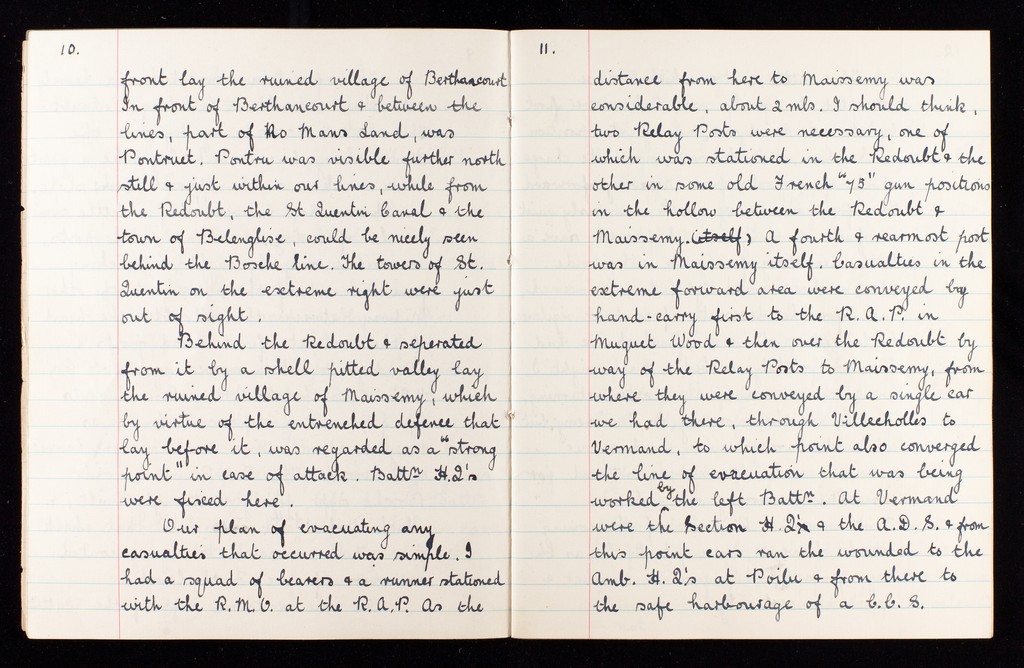 10.
front lay the ruined village of Berthancourt
In front of Berthancourt & between the
lines, part of No Mans Land, was
Pontruet. Pontru was visible further north
still & just within our lines, while from
the Redoubt, the St Quentin Canal & the
town of Belenglise, could be nicely seen
behind the Bosche line. The towers of St.
Quentin on the extreme right were just
out of sight.
Behind the Redoubt & seperated
from it by a shell pitted valley lay
the ruined village of Maissemy, which
by virtue of the entrenched defence that
lay before it, was regarded as a "strong
point" in case of attack. Battn H.Q's
were fixed here.
Our plan of evacuating any
casualties that occurred was simple. I
had a squad of bearers & a runner stationed
with the R.M.O. at the R.A.P. As the
11.
distance from here to Maissemy was
considerable, about 2 mls. I should think,
two Relay Posts were necessary, one of
which was stationed in the Redoubt & the
other in some old French "75" gun positions
in the hollow between the Redoubt &
Maissemy. (itself) A fourth & rearmost post
was in Maissemy itself. Casualties in the
extreme forward area were conveyed by
hand-carry first to the R.A.P. in
Muguet Wood & then over the Redoubt by
way of the Relay Posts to Maissemy, from
where they were conveyed by a single car
we had there, through Villecholles to
Vermand, to which point also converged
the line of evacuation that was being
worked by the left Battn. At Vermand
were the Section H.Q's & the A.D.S. & from
this point cars ran the wounded to the
Amb. H.Q's at Poilu & from there to
the safe harbourage of a C.C.S.